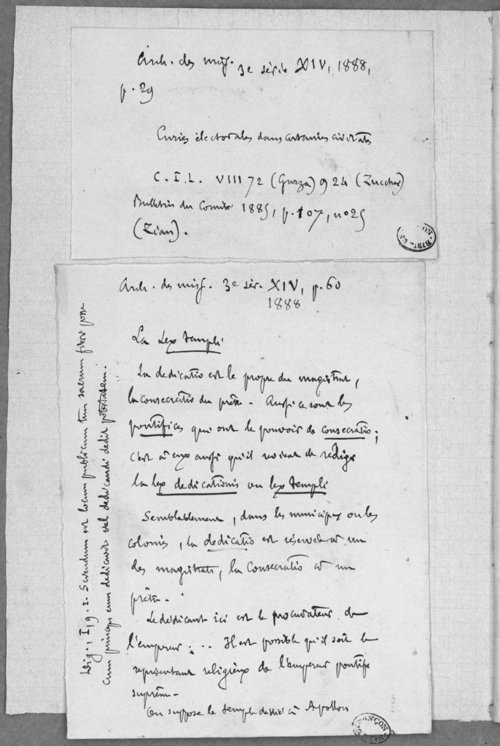 Arch. des miss. 3e série XIV, 1888,
p. 29
Curies électorales dans certaines civitates
C. I. L. VIII 72 (Gurza) 924 (Zucchar)
Bulletin du Comité 1885, p. 107, n° 25
(Zian).
Arch. des miss. 3e sér. XIV, p. 60
1888
La Lex templi.
La dedicatio est le propre du magistrat,
la consecratio du prêtre. Aussi ce sont les
pontifices qui ont le pouvoir de consecratio;
c'est à eux aussi qu'il revient de rédiger
la lex dedicationis ou lex templi
Semblablement, dans les municipes ou les
colonies, la dedicatio est réservée à un
des magistrats, la consecratio à un
prêtre.
Le dédicant ici est le procurateur de
l'empereur; .. Il est possible qu'il soit le
représentant religieux de l'empereur pontife
suprême.
On suppose le temple dédié à Apollon
Dig., I, 9. 1. Sciendum est locum publicum tum sacrum fieri posse
cum princeps eum dedicavit vel dedicandi dedit potestatem.